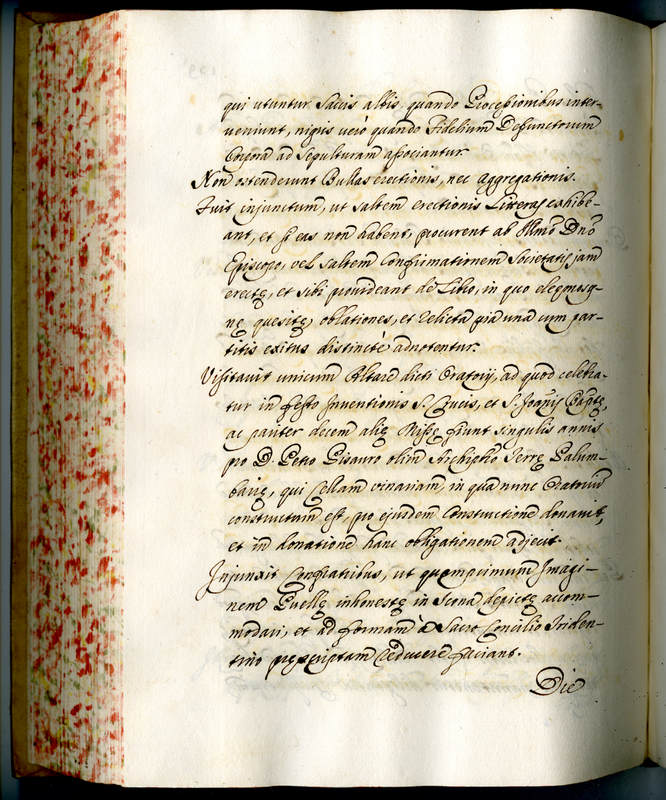 qui utuntur Saccis albis quando Processionibus inter-
veniunt, nigris verò quando Fidelium Defunctorum
Corpora ad Sepulturam associantur.
Non ostenderunt Bullas erectionis, nec aggregationis.
Fuit injunctum, ut saltem erectionis Literas exhibe-
ant, et si eas non habent, procurent ab Illmo Dno
Episcopo, vel saltem Confirmationem Societatis jam
erectę, et sibi provideant de Libro, in quo eleemosy-
nę quesitę, oblationes, et relicta pia una cum par-
titis exitus distinctè adnotentur.
Visitavit unicum Altare dicti Oratorij, ad quod celebra-
tur in festo Inventionis S. Crucis, et S. Joannis Baptę,
ac pariter decem alię Missę fiunt singulis annis
pro D. Petro Pisauro olim Archipbro Terrę Palum-
barię, qui Cellam vinariam, in qua nunc Oratorium
constructum est, pro ejusdem Constructione donavit,
et in donatione hanc obligationem adjecit.
Injunxit Confratribus, ut quamprimum Imagi-
nem Puellę inhonestę in Icona depictę accom-
modari, et ad formam à Sacro Concilio Triden-
tino pręscriptam reducere faciant.
Die